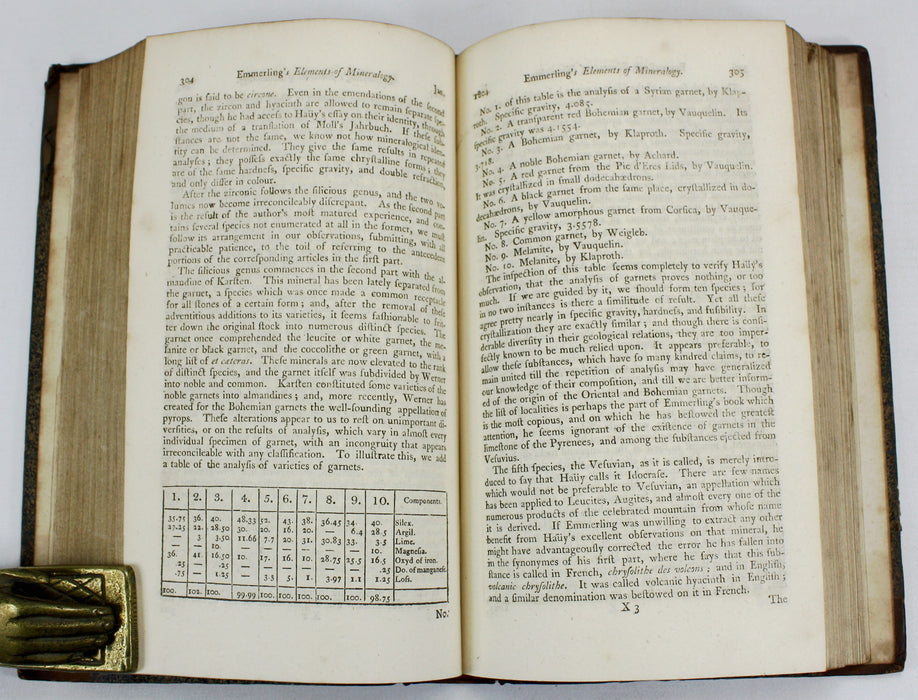 304 Emmerling's Elements of Mineralogy. Jan.
gon is said to be circone. Even in the emendations of the second
part, the zircon and hyacinth are allowed to remain separate spe-
cies, though he had access to Haüy's essay on their identity, through
the medium of a translation of Moll's Jahrbuch. If these sub-
stances are not the same, we know not how mineralogical iden-
tity can be determined. They give the same results in repeated
analyses; they possess exactly the same chrystalline forms; they
are of the same hardness, specific gravity, and double refraction,
and only differ in colour.
After the zirconic follows the silicious genus, and the two vo-
lumes now become irreconcileably discrepant. As the second part
is the result of the author's most matured experience, and con-
tains several species not enumerated at all in the former, we must
follow its arrangement in our observations, submitting, with all
practicable patience, to the toil of referring to the antecedent
portions of the corresponding articles in the first part.
The silicious genus commences in the second part with the al-
mandine of Karsten. This mineral has been lately separated from
the garnet, a species which was once made a common receptacle
for all stones of a certain form; and, after the removal of these
adventitious additions to its varieties, it seems fashionable to frit-
ter down the original stock into numerous distinct species. The
garnet once comprehended the leucite or white garnet, the me-
lanite or black garnet, and the coccolithe or green garnet, with a
long list of et ceteras. These minerals are now elevated to the rank
of distinct species, and the garnet itself was subdivided by Werner
into noble and common. Karsten constituted some varieties of the
noble garnets into almandines; and, more recently, Werner has
created for the Bohemian garnets the well-sounding appellation of
pyrops. These alterations appear to us to rest on unimportant di-
versities, or on the results of analysis, which vary in almost every
individual specimen of garnet, with an incongruity that appears
irreconcileable with any classification. To illustrate this, we add
a table of the analysis of varieties of garnets.
1. 2. 3. 4. 5. 6. 7. 8. 9. 10. Components.
35.75 36. 40. 48.33 52. 43. 38. 36.45 34. 40. Silex.
27.25 22. 28.50 30. 20. 16. 20. 6.4 28.5 Argil.
— 3 3.50 11.66 7.7 20. 31. 30.83 33. 3.5 Lime.
— — 10. — — — — — — 10. Magnesia.
36. 41. 16.50 10. 17. 16. 10. 28.75 25.5 16.5 Oxyd of iron.
.25 — .25 — — — — — .25 Do. of manganese.
.75 — 1.25 3.3 5. 1. 3.97 1.1 1.25 Loss.
100. 102. 100. 99.99 100. 100. 100. 100. 100. 98.75
No.
1804 Emmerling's Elements of Mineralogy. 305
No. 1. of this table is the analysis of a Syrian garnet, by Klap-
roth. Specific gravity, 4.085.
No. 2. A transparent red Bohemian garnet, by Vauquelin. Its
specific gravity was 4.1554.
No. 3. A Bohemian garnet, by Klaproth. Specific gravity,
3.718.
No. 4. A noble Bohemian garnet, by Achard.
No. 5. A red garnet from the Pic d'Eres Lids, by Vauquelin.
It was crystallized in small dodecahædrons.
No. 6. A black garnet from the same place, crystallized in do-
decahædrons, by Vauquelin.
No. 7. A yellow amorphous garnet from Corsica, by Vauque-
lin. Specific gravity, 3.5578.
No. 8. Common garnet, by Weigleb.
No. 9. Melanite, by Vauquelin.
No. 10. Melanite, by Klaproth.
The inspection of this table seems completely to verify Haüy's
observation, that the analysis of garnets proves nothing, or too
much. If we are guided by it, we should form ten species; for
in no two instances is there a similitude of result. Yet all these
agree pretty nearly in specific gravity, hardness, and fusibility. In
crystallization they are exactly similar; and though there is consi-
derable diversity in their geological relations, they are too imper-
fectly known to be much relied upon. It appears preferable, to
allow these substances, which have so many kindred claims, to re-
main united till the repetition of analysis may have generalized
our knowledge of their composition, and till we are better inform-
ed of the origin of the Oriental and Bohemian garnets. Though
the list of localities is perhaps the part of Emmerling's book which
is the most copious, and on which he has bestowed the greatest
attention, he seems ignorant of the existence of garnets in the
limestone of the Pyrenees, and among the substances ejected from
Vesuvius.
The fifth species, the Vesuvian, as it is called, is merely intro-
duced to say that Haüy calls it Idocrase. There are few names
which would not be preferable to Vesuvian, an appellation which
has been applied to Leucites, Augites, and almost every one of the
numerous products of the celebrated mountain from whose name
it is derived. If Emmerling was unwilling to extract any other
benefit from Haüy's excellent observations on that mineral, he
might have advantageously corrected the error he has fallen into
in the synonymes of his first part, where he says that this sub-
stance is called in French, chrysolithe des volcons; and in English,
volcanic chrysolithe. It was called volcanic hyacinth in English;
and a similar denomination was bestowed on it in French.
X 3 The